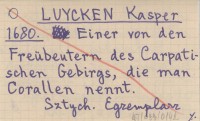 LUYCKEN Kasper
1680. Einer von den
Freübeutern des Carpati-
schen Gebirgs, die man
Corallen nennt.
Sztych. Egzemplarz